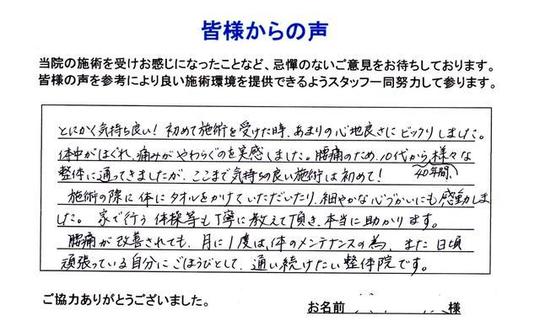 皆様からの声
当院の施術を受けお感じになったことなど、忌憚のないご意見をお待ちしております。
皆様の声を参考により良い施術環境を提供できるようスタッフ一同努力して参ります。
とにかく気持ち良い！初めて施術を受けた時、あまりの心地良さにビックリしました。
体中がほぐれ、痛みがやわらぐのを実感しました。腰痛のため、10代から様々な
整体に通ってきましたが、ここまで気持ちの良い施術は初めて！
40年間、
施術の際に体にタオルをかけていただいたり、細やかな心づかいにも感動しま
した。家で行う体操等も丁寧に教えて頂き、本当に助かります。
腰痛が改善されても、月に1度は、体のメンテナンスの為、また日頃
頑張っている自分にごほうびとして、通い続けたい整体院です。
ご協力ありがとうございました。
お名前 様